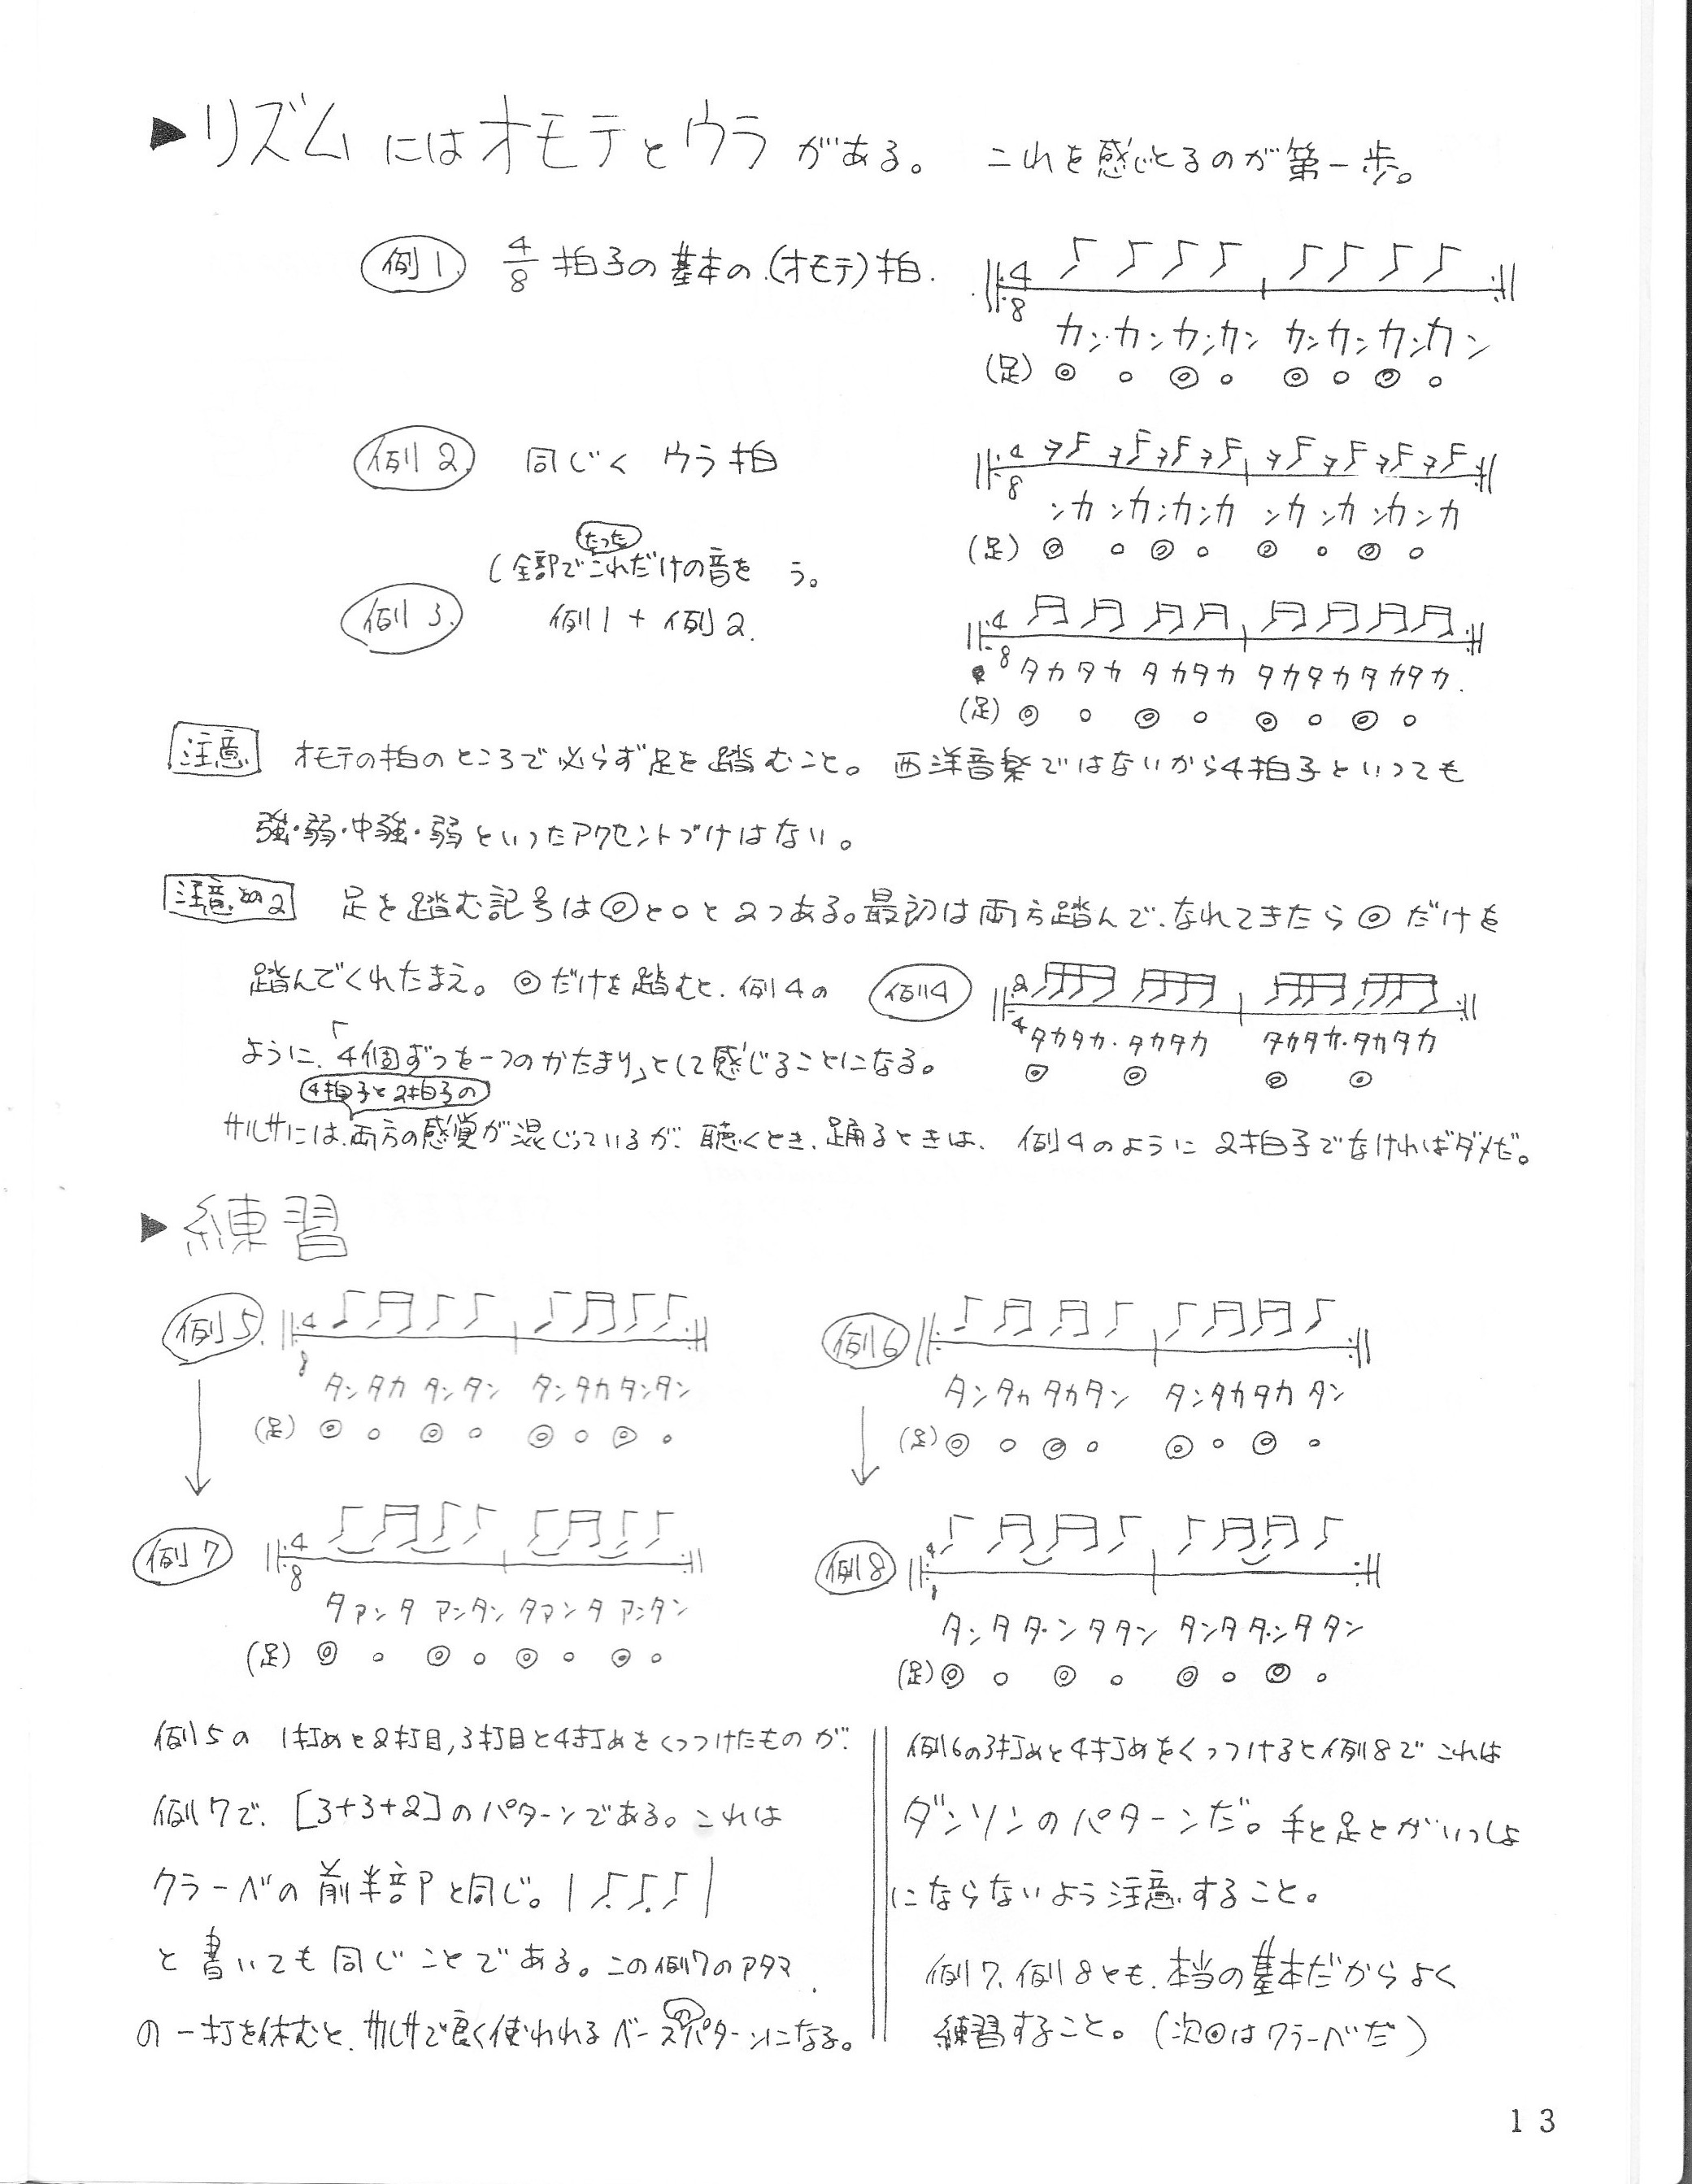 ▶リズムにはオモテとウラがある。 これを感じとるのが第一歩。
例1 4/8 拍子の基本の(オモテ)拍.
4
8
カン・カン・カン・カン カン・カン・カン・カン
(足) ◎ ○ ◎ ○ ◎ ○ ◎ ○
例2 同じく ウラ拍
4
8
ンカ ンカ ンカ ンカ ンカ ンカ ンカ ンカ
(足) ◎ ○ ◎ ○ ◎ ○ ◎ ○
たった
(全部でこれだけの音を う。
例3. 例1 + 例2.
4
8
タカタカ タカタカ タカタカタカタカ.
(足) ◎ ○ ◎ ○ ◎ ○ ◎ ○
注意 オモテの拍のところで必らず足を踏むこと。西洋音楽ではないから4拍子といっても
強・弱・中強・弱といったアクセントづけはない。
注意その2 足を踏む記号は◎と○と2つある。最初は両方踏んで、なれてきたら◎だけを
踏んでくれたまえ。◎だけを踏むと、例4の
例4
2
4
タカタカ・タカタカ タカタカ・タカタカ
◎ ◎ ◎ ◎
ように、「4個ずつを一つのかたまり」として感じることになる。
4拍子と2拍子の
サルサには、両方の感覚が混じっているが、聴くとき、踊るときは、例4のように2拍子でなければダメだ。
▶練習
例5.
4
8
タンタカ タンタン タンタカタンタン
(足) ◎ ○ ◎ ○ ◎ ○ ◎ ○
例6
タンタカ タカタン タンタカタカ タン
(足) ◎ ○ ◎ ○ ◎ ○ ◎ ○
例7
4
8
タァンタ アンタン タァンタ アンタン
(足) ◎ ○ ◎ ○ ◎ ○ ◎ ○
例8
4
8
タンタタ・ンタタン タンタタ・ンタタン
(足) ◎ ○ ◎ ○ ◎ ○ ◎ ○
例5の 1打めと2打目,3打目と4打めをくっつけたものが、
例7で、[3+3+2]のパターンである。これは
クラーベの前半部と同じ。|♪.♪.♪|
と書いても同じことである。この例7のアタマ
の一打を休むと、サルサで良く使われるベースのパターンになる。
例6の3打めと4打めをくっつけると例8で これは
ダンソンのパターンだ。手と足とがいっしょ
にならないよう注意すること。
例7、例8とも、本当の基本だからよく
練習すること。(次回はクラーベだ)
13